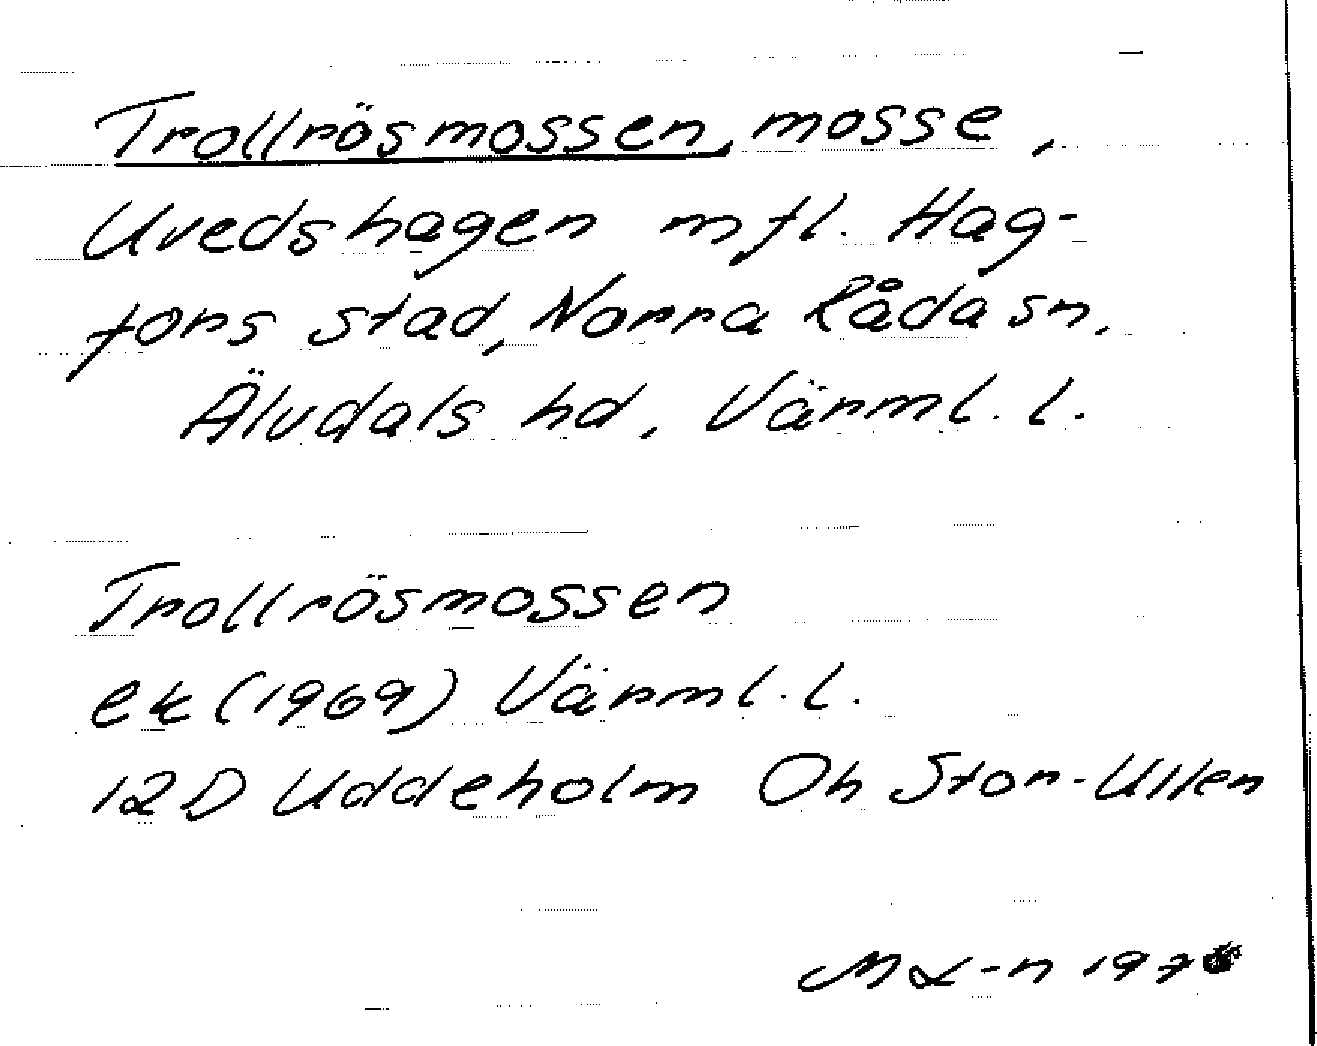 Trollrösmossen, mosse,
Uvedshagen mfl. Hag-
fors stad, Norra Råda sn.
Älvdals hd, Värml. l.
Trollrösmossen
ek (1969) Värml. l.
12D Uddeholm Oh Stor-Ullen